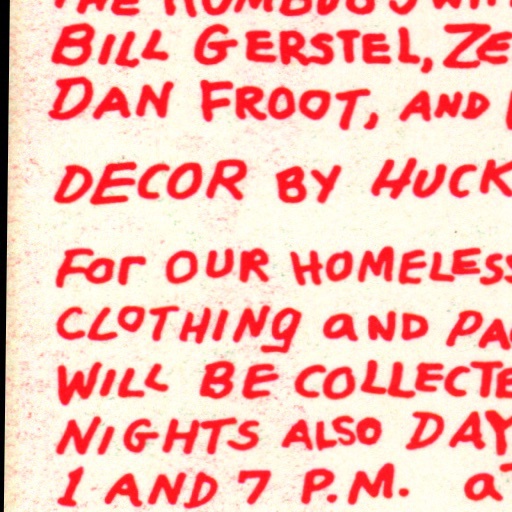 THE HUMBUGS WITH
BILL GERSTEL, ZE
DAN FROOT, AND
DECOR BY HUCK
For OUR HOMELESS
CLOTHING aND PA
WILL BE COLLECTE
NIGHTS ALSO DAY
1 AND 7 P.M. aT